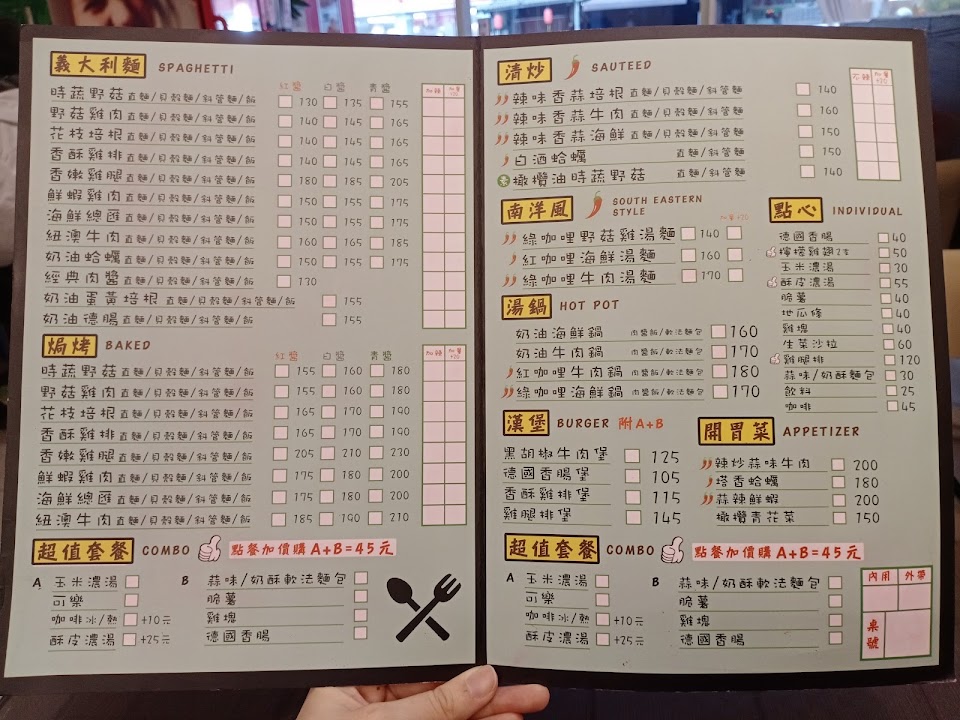 義大利麵 SPAGHETTI
紅醬 白醬 青醬 加麵 加量
時蔬野菇 直麵/貝殼麵/斜管麵/飯 130 135 155
野菇雞肉 直麵/貝殼麵/斜管麵/飯 140 145 165
花枝培根 直麵/貝殼麵/斜管麵/飯 140 145 165
香酥雞排 直麵/貝殼麵/斜管麵/飯 140 145 165
香嫩雞腿 直麵/貝殼麵/斜管麵/飯 180 185 205
鮮蝦雞肉 直麵/貝殼麵/斜管麵/飯 150 155 175
海鮮總匯 直麵/貝殼麵/斜管麵/飯 150 155 175
紐澳牛肉 直麵/貝殼麵/斜管麵/飯 160 165 185
奶油蛤蠣 直麵/貝殼麵/斜管麵/飯 150 155 175
經典肉醬 直麵/貝殼麵/斜管麵/飯 170
奶油蛋黃培根 直麵/貝殼麵/斜管麵/飯 155
奶油德腸 直麵/貝殼麵/斜管麵/飯 155
焗烤 BAKED
紅醬 白醬 青醬
時蔬野菇 直麵/貝殼麵/斜管麵/飯 155 160 180
野菇雞肉 直麵/貝殼麵/斜管麵/飯 155 160 180
花枝培根 直麵/貝殼麵/斜管麵/飯 165 170 190
香酥雞排 直麵/貝殼麵/斜管麵/飯 165 170 190
香嫩雞腿 直麵/貝殼麵/斜管麵/飯 205 210 230
鮮蝦雞肉 直麵/貝殼麵/斜管麵/飯 175 180 200
海鮮總匯 直麵/貝殼麵/斜管麵/飯 175 180 200
紐澳牛肉 直麵/貝殼麵/斜管麵/飯 185 190 210
超值套餐 COMBO 點餐加價購A+B=45元
A 玉米濃湯
可樂
咖啡冰/熱 +10元
酥皮濃湯 +25元
B 蒜味/奶酥軟法麵包
脆薯
雞塊
德國香腸
清炒 SAUTEED
辣味香蒜培根 直麵/貝殼麵/斜管麵 140
辣味香蒜牛肉 直麵/貝殼麵/斜管麵 160
辣味香蒜海鮮 直麵/貝殼麵/斜管麵 150
白酒蛤蠣 直麵/斜管麵 150
素 橄欖油時蔬野菇 直麵/斜管麵 140
南洋風 SOUTH EASTERN STYLE
加量+20
綠咖哩野菇雞湯麵 140
紅咖哩海鮮湯麵 160
綠咖哩牛肉湯麵 170
湯鍋 HOT POT
奶油海鮮鍋 肉醬飯/軟法麵包 160
奶油牛肉鍋 肉醬飯/軟法麵包 170
紅咖哩牛肉鍋 肉醬飯/軟法麵包 180
綠咖哩海鮮鍋 肉醬飯/軟法麵包 170
點心 INDIVIDUAL
德國香腸 40
檸檬雞翅2支 50
玉米濃湯 30
酥皮濃湯 55
脆薯 40
地瓜條 40
雞塊 40
生菜沙拉 60
雞腿排 120
蒜味/奶酥麵包 30
飲料 25
咖啡 45
漢堡 BURGER 附A+B
黑胡椒牛肉堡 125
德國香腸堡 105
香酥雞排堡 115
雞腿排堡 145
開胃菜 APPETIZER
辣炒蒜味牛肉 200
塔香蛤蠣 180
蒜辣鮮蝦 200
橄欖青花菜 150
超值套餐 COMBO 點餐加價購A+B=45元
A 玉米濃湯
可樂
咖啡冰/熱 +10元
酥皮濃湯 +25元
B 蒜味/奶酥軟法麵包
脆薯
雞塊
德國香腸
內用 外帶
桌號